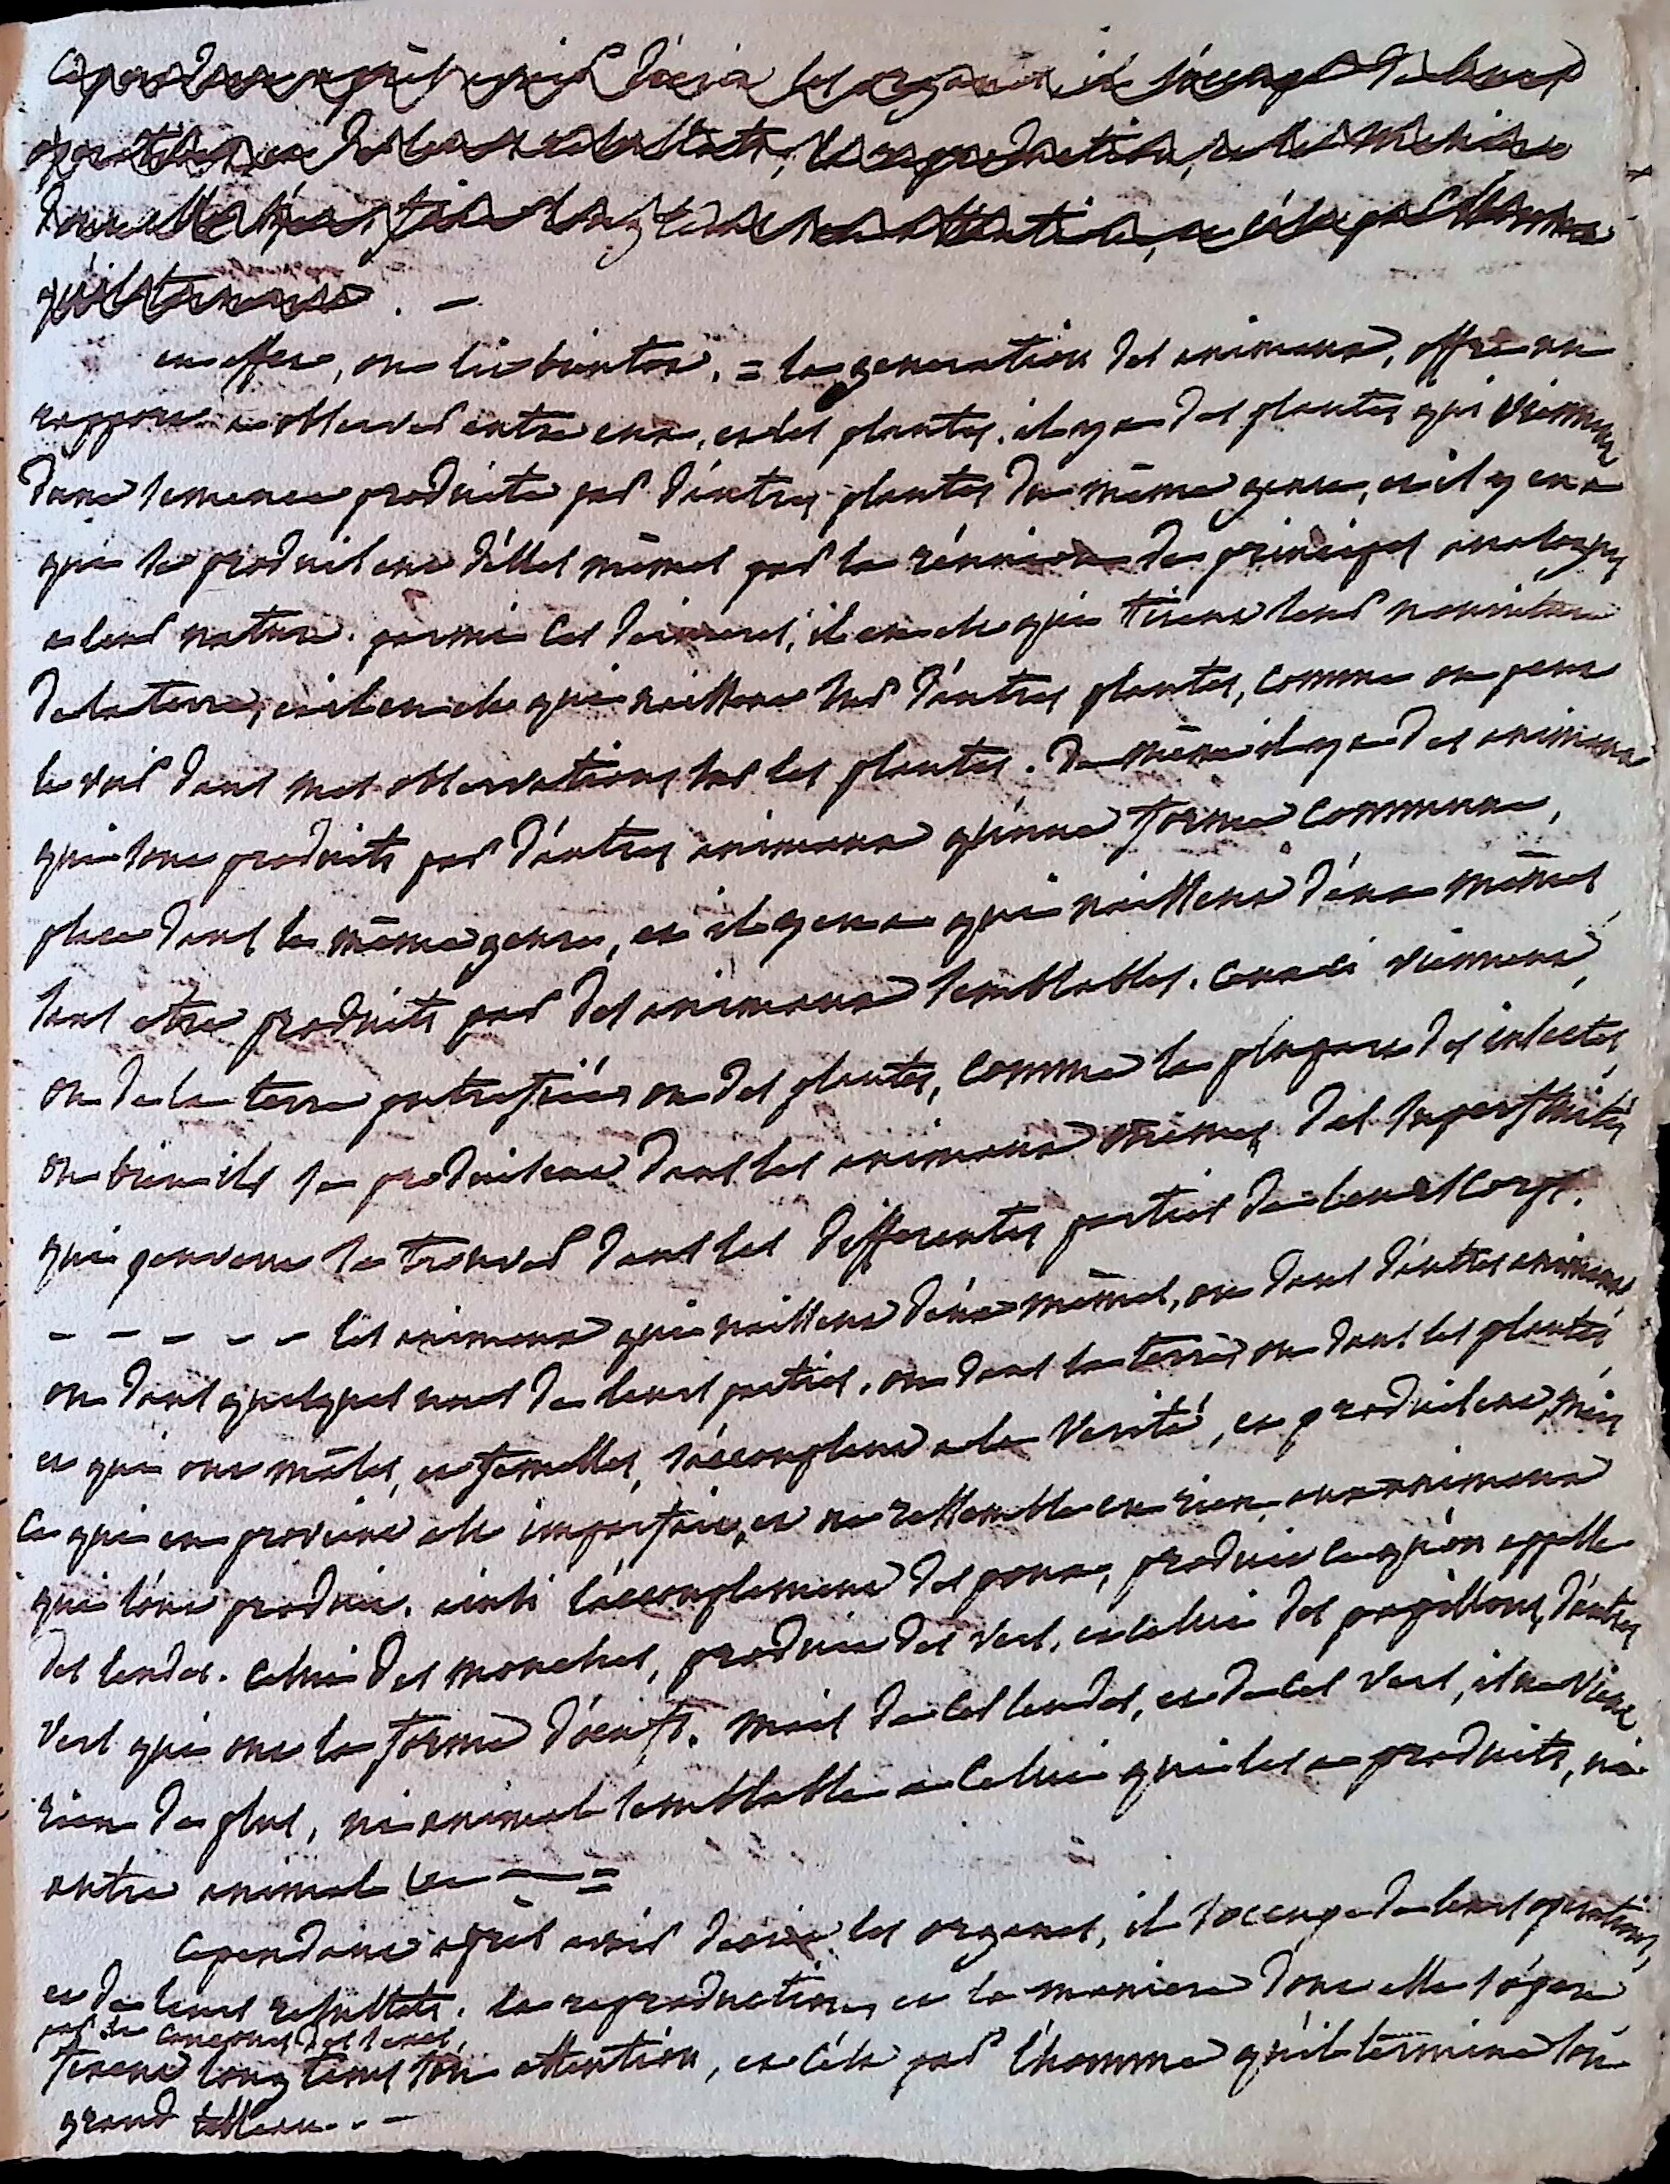 Cependant après avoir décrit les organes, il s'occupe de leurs
operations, et de leurs resultats, la reproduction, et la maniere
dont elle s'opere, fixent longtems son attention, et c'est par l'homme
qu'il termine . —
en effet, on lit bientot. = la generation des animaux, offre un
rapport a observer entre eux, et les plantes. il y a des plantes qui viennent
d'une semence produite par d'autres plantes du même genre, et il y en a
qui se produisent d'elles mêmes par la réunion de principes analogues
a leur nature. parmi ces dernieres, il en est qui tirent leur nourriture
de la terre, et il en est qui naissent sur d'autres plantes, comme on peut
le voir dans mes observations sur les plantes. de même il y a des animaux
qui sont produits par d'autres animaux qu'une forme commune,
place dans le même genre, et il y en a qui naissent d'eux mêmes
sans etre produits par des animaux semblables. ceux ci viennent,
ou de la terre putrefiée, ou des plantes, comme la plupart des insectes,
ou bien ils se produisent dans les animaux mêmes des superfluités
qui peuvent se trouver dans les differentes parties de leurs corps.
— — — — — les animaux qui naissent d'eux mêmes, ou dans d'autres animaux
ou dans quelques unes de leurs parties, ou dans la terre ou dans les plantes,
et qui ont mâles, et femelles, s'accouplent a la verité, et produisent, mais
ce qui en provient est imparfait, et ne ressemble en rien aux animaux
qui l'ont produit. ainsi l'accouplement des poux, produit ce qu'on appelle
des lendes. celui des mouches, produit des vers. et celui des papillons, d'autres
vers qui ont la forme d'oeufs. mais de ces lendes, et de ces vers, il ne vient
rien de plus, ni animal semblable a celui qui les a produits, ni
autre animal =
Cependant après avoir decrit les organes, il s'occupe de leurs operations,
et de leurs resultats. la reproduction, et la maniere dont elle s'opere
par le concours des sexes,
fixent longtems son attention, et c'est par l'homme qu'il termine son
grand tableau. . —